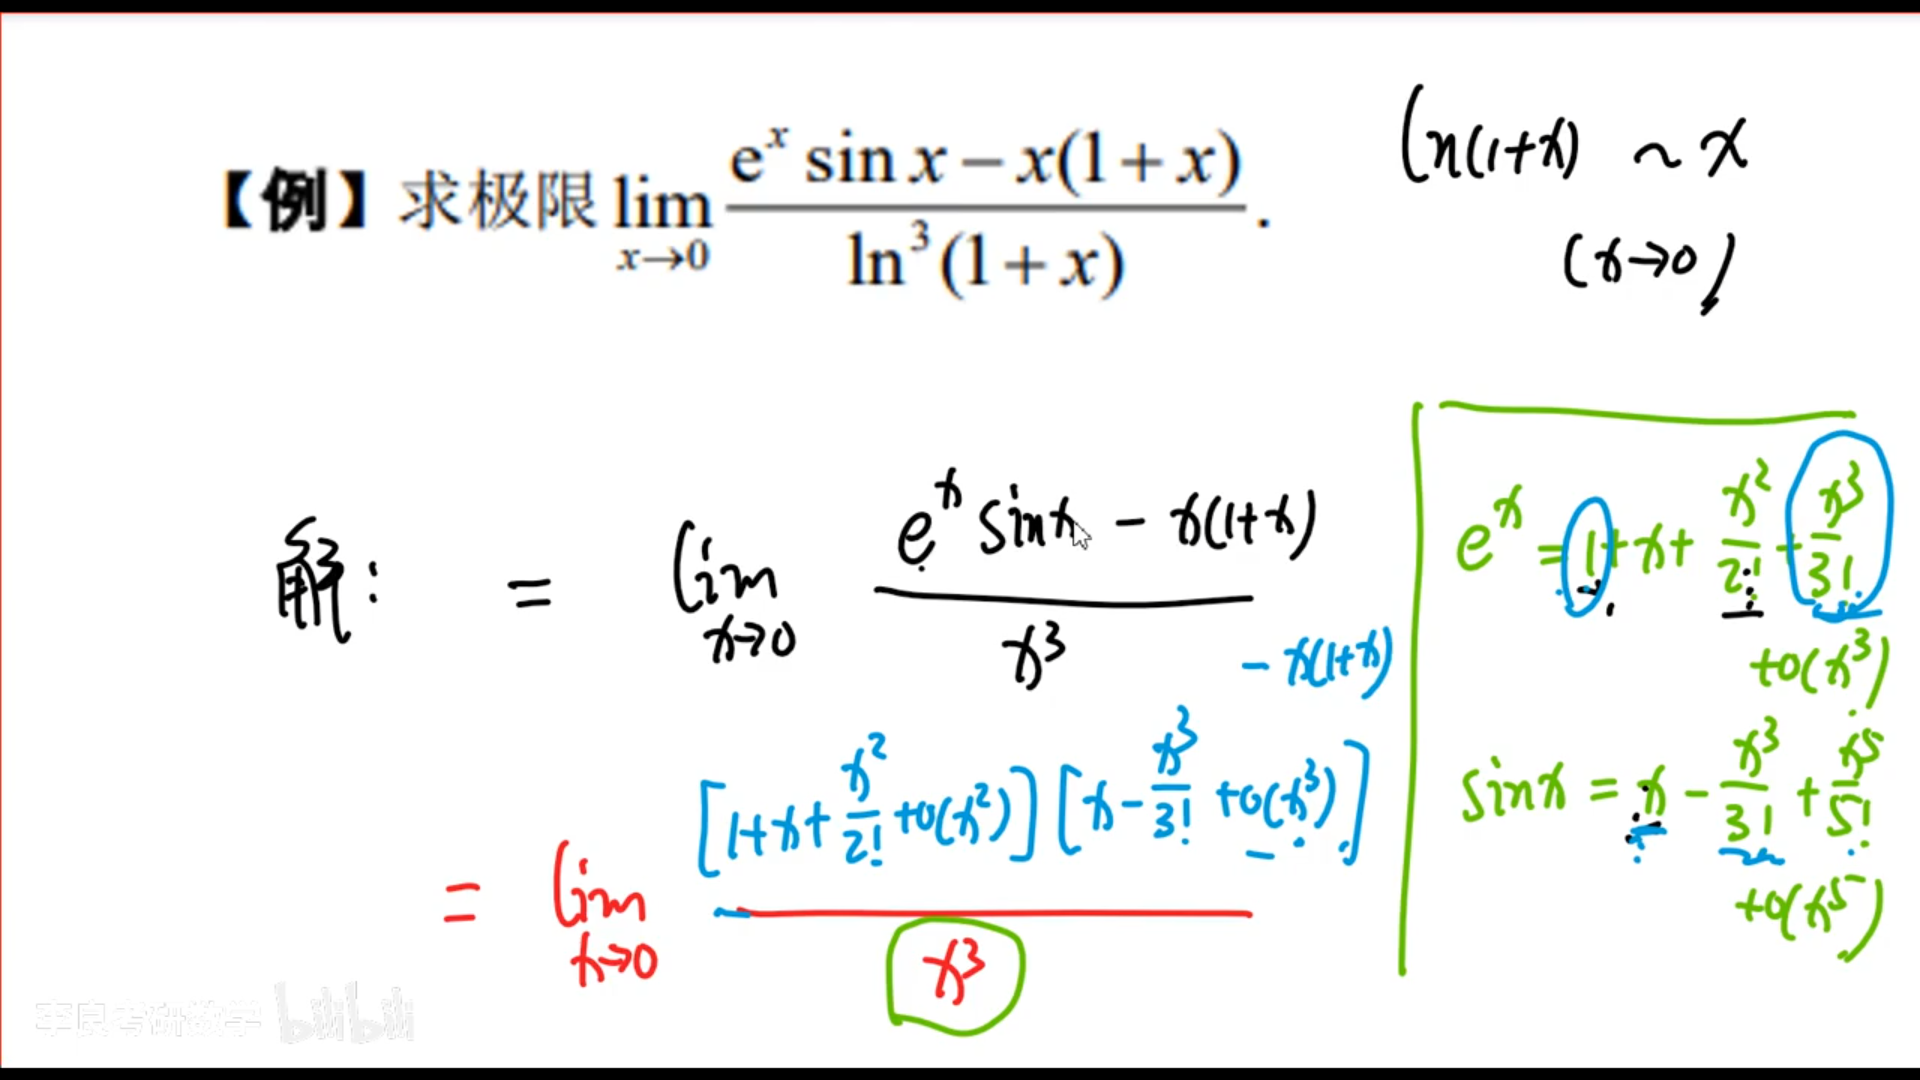 【例】求极限 lim x→0 (e^x sin x − x(1+x)) / ln³(1+x) .
ln(1+x) ~ x
(x→0)
解: = lim x→0 (e^x sinx − x(1+x)) / x³
− x(1+x)
= lim x→0 [1+x+x²/2!+o(x²)][x−x³/3!+o(x³)] / x³
e^x = 1+x+x²/2!+x³/3!
+o(x³)
sinx = x − x³/3! + x⁵/5!
+o(x⁵)
李良考研数学 bilibili